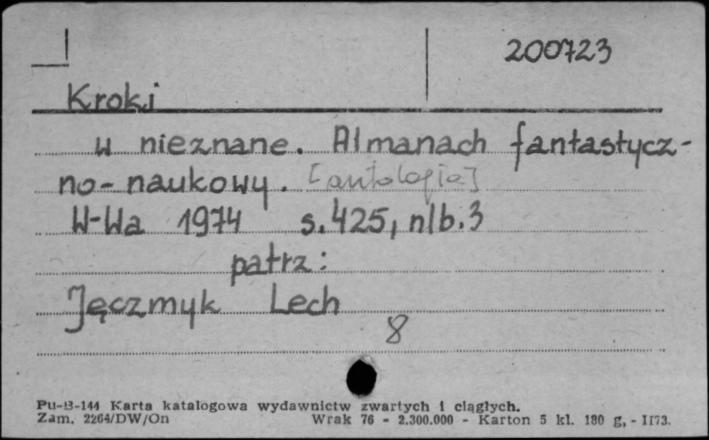 200723
Kroki
w nieznane. Almanach fantastycz-
no-naukowy. [antologia]
W-Wa 1974 s. 425, nlb. 3
patrz:
Jęczmyk Lech
8
Pu-B-144 Karta katalogowa wydawnictw zwartych i ciągłych.
Zam. 2264/DW/On Wrak 76 - 2.300.000 - Karton 5 kl. 180 g, - II73.